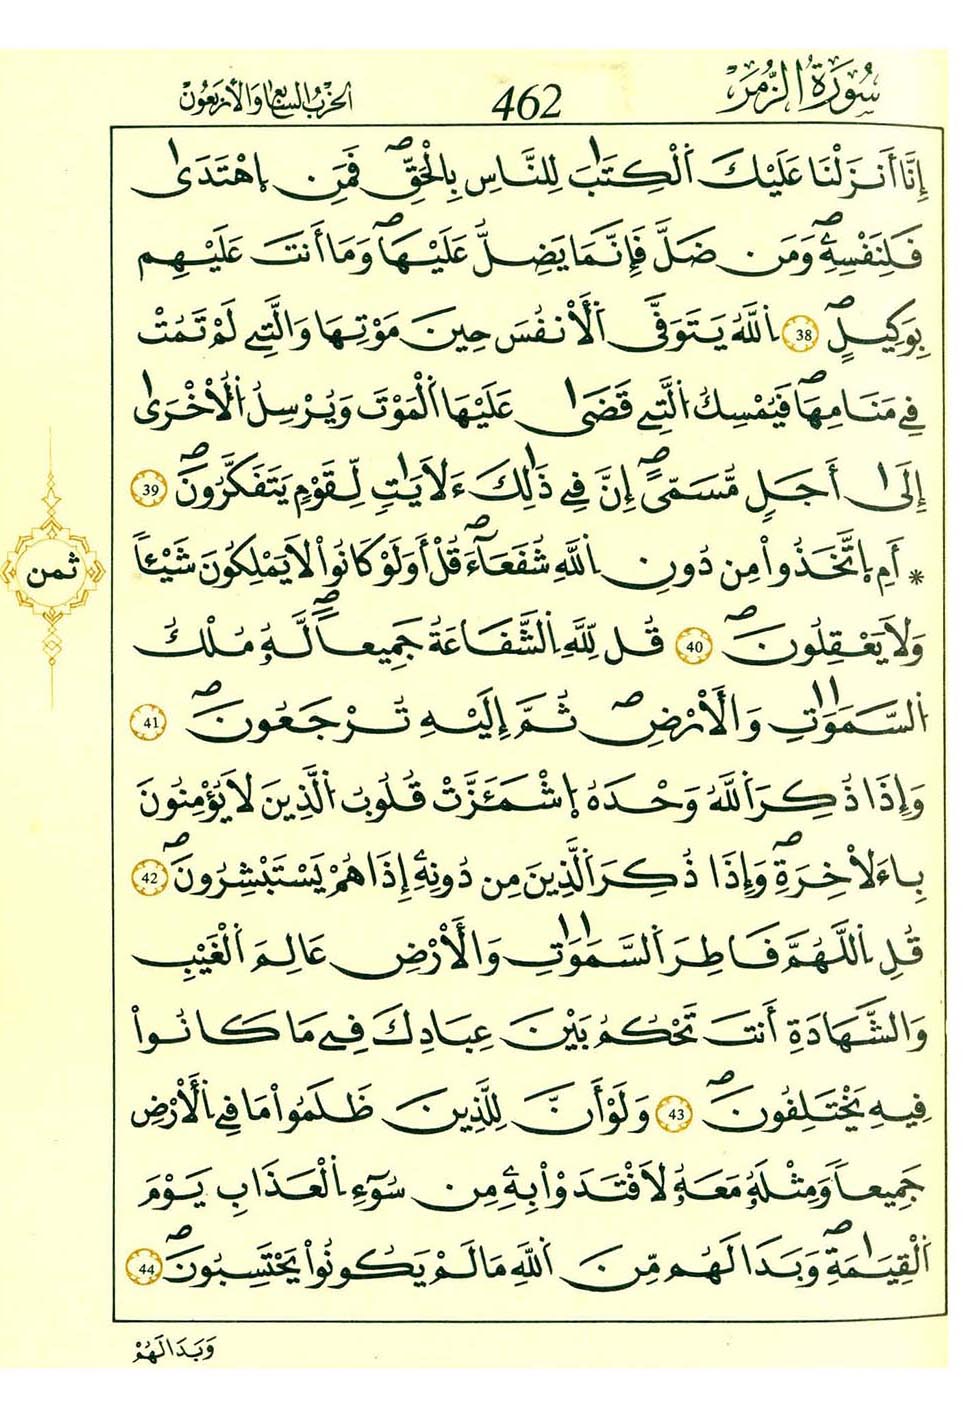 سُورَةُ الزُّمَرِ 462 الحِزْبُ السَّابِعُ وَالأَرْبَعُونَ
إِنَّا أَنزَلْنَا عَلَيْكَ اَ۬لْكِتَٰبَ لِلنَّاسِ بِالْحَقِّۖ فَمَنِ اِ۪هْتَد۪ىٰ
فَلِنَفْسِهِۦۖ وَمَن ضَلَّ فَإِنَّمَا يَضِلُّ عَلَيْهَاۖ وَمَا أَنتَ عَلَيْهِم
بِوَكِيلٍۖ 38 اِ۬للَّهُ يَتَوَفَّى اَ۬لْأَنفُسَ حِينَ مَوْتِهَا وَالتِے لَمْ تَمُتْ
فِے مَنَامِهَاۖ فَيُمْسِكُ اُ۬لتِے قَضَىٰ عَلَيْهَا اَ۬لْمَوْتَ وَيُرْسِلُ اُ۬لُاخْر۪ىٰ
إِلَىٰ أَجَلٖ مُّسَمّىًۖ إِنَّ فِے ذَٰلِكَ ءَلَايَٰتٖ لِّقَوْمٖ يَتَفَكَّرُونَۖ 39
* أَمِ اِ۪تَّخَذُواْ مِن دُونِ اِ۬للَّهِ شُفَعَآءَۖ قُلْ أَوَلَوْ كَانُواْ لَا يَمْلِكُونَ شَيْـٔاٗ
وَلَا يَعْقِلُونَۖ 40 قُل لِّلهِ اِ۬لشَّفَاعَةُ جَمِيعاٗۖ لَّهُۥ مُلْكُ
اُ۬لسَّمَٰوَٰتِ وَالْأَرْضِۖ ثُمَّ إِلَيْهِ تُرْجَعُونَۖ 41
وَإِذَا ذُكِرَ اَ۬للَّهُ وَحْدَهُ اُ۪شْمَأَزَّتْ قُلُوبُ اُ۬لذِينَ لَا يُؤْمِنُونَ
بِاءَلْاخِرَةِۖ وَإِذَا ذُكِرَ اَ۬لذِينَ مِن دُونِهِۦ إِذَا هُمْ يَسْتَبْشِرُونَۖ 42
قُلِ اِ۬للَّهُمَّ فَاطِرَ اَ۬لسَّمَٰوَٰتِ وَالْأَرْضِ عَالِمَ اَ۬لْغَيْبِ
وَالشَّهَادَةِ أَنتَ تَحْكُمُ بَيْنَ عِبَادِكَ فِے مَا كَانُواْ
فِيهِ يَخْتَلِفُونَۖ 43 وَلَوْ أَنَّ لِلذِينَ ظَلَمُواْ مَا فِے اِ۬لْأَرْضِ
جَمِيعاٗ وَمِثْلَهُۥ مَعَهُۥ لَافْتَدَوْاْ بِهِۦ مِن سُوٓءِ اِ۬لْعَذَابِ يَوْمَ
اَ۬لْقِيَٰمَةِۖ وَبَدَا لَهُم مِّنَ اَ۬للَّهِ مَا لَمْ يَكُونُواْ يَحْتَسِبُونَۖ 44
ثمن
وَبَدَا لَهُمْ